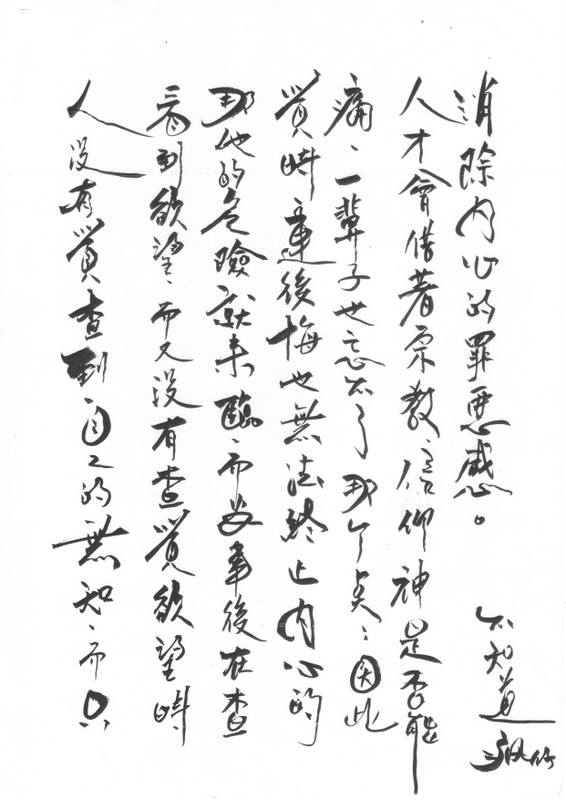 人沒有覺查到自己的無知、而只
看到欲望、而又沒有查覺欲望時、
那他的危險就來臨、而事後在查
覺時連後悔也無法終止內心的
痛、一輩子也忘不了那个、因此
人才會借著宗教、信仰神是否能
消除內心的罪惡感。
不知道